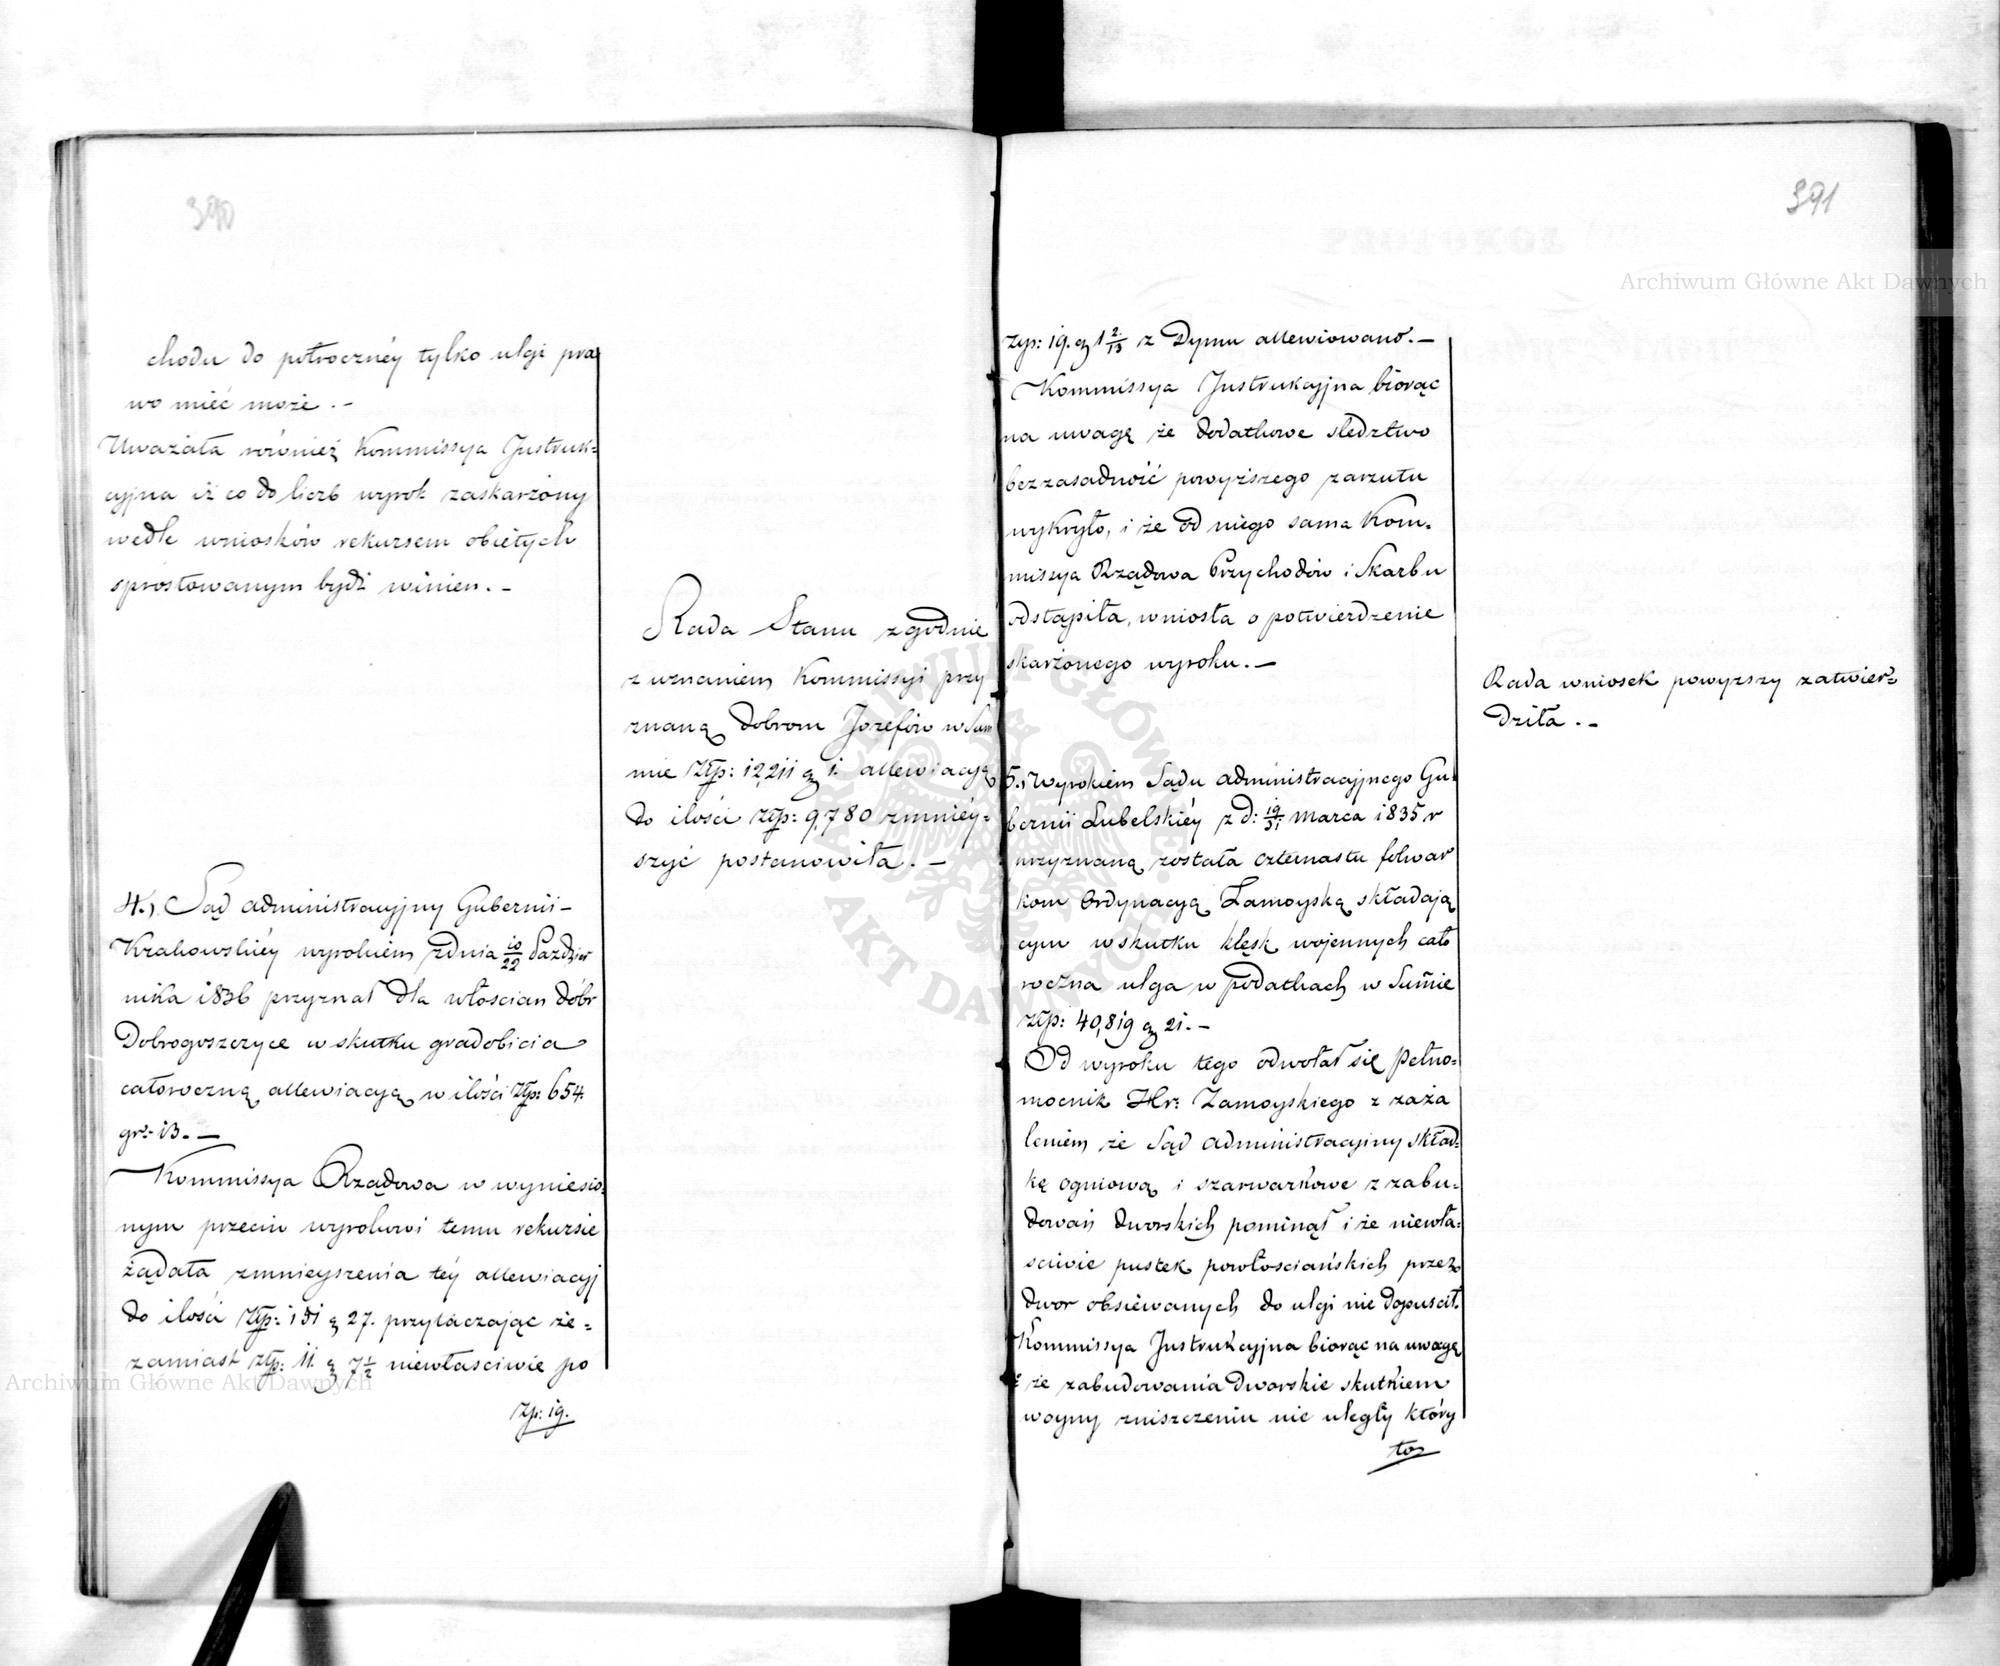 390
chodu do półrocznéy tylko ulgi pra
wo mieć może. –
Uważała również Kommissya Instruk=
cyjna iż co do liczb wyrok zaskarżony
wedle wniosków rekursem obiętych
sprostowanym bydź winien. –
Rada Stanu zgodnie
z uznaniem Kommissyi przy
znaną dobrom Jozefów w Sum
mie Złp: 12,211 g 1. allewiacyą
do ilości złp: 9,780 zmniéy=
szyć postanowiła. –
4., Sąd administracyjny Gubernii –
Krakowskiéy wyrokiem z dnia 10/22 Paździer
nika 1836 przyznał dla włoscian dóbr
Dobrogoszczyce w skutku gradobicia
całoroczną allewiacyą w ilości Złp: 654.
gr: 13. –
Kommissya Rządowa w wyniesio=
nym przeciw wyrokowi temu rekursie
żądała zmnieyszenia téy allewiacyj
do ilości Złp: 181 g 27. przytaczając że=
zamiast złp: 11. g 7 1/2 niewłasciwie po
Zp: 19.
391
Zyp: 19. g 1 2/13 z Dymu allewiowano. –
Kommissya Instrukcyjna biorąc
na uwagę że dodatkowe sledztwo
bezzasadność powyższego zarzutu
wykryło, i że od niego sama Kom=
missya Rządowa Przychodów i Skarbu
odstąpiła, wniosła o potwierdzenie
skarżonego wyroku. –
Rada wniosek powyższy zatwier=
dziła. –
5., Wyrokiem Sądu administracyjnego Gu
bernii Lubelskiéy z d: 19/31 Marca 1835 r
przyznaną została czternastu folwar
kom Ordynacyą Zamoyską składają
cym w skutku klęsk wojennych cało
roczna ulga w podatkach w Summie
Złp: 40,819 g 21. –
Od wyroku tego odwołał się Pełno=
mocnik Hr: Zamoyskiego z zaża
leniem że Sąd administracyiny skład=
kę ogniową i szarwarkowe z zabu=
dowań dworskich pominął i że niewła=
sciwie pustek powłosciańskich przez
dwor obsiewanych do ulgi nie dopuscił.
Kommissya Instrukcyjna biorąc na uwagę
że zabudowania Dworskie skutkiem
woyny zniszczeniu nie uległy który
to
Archiwum Główne Akt Dawnych
Archiwum Główne Akt Dawnych
ARCHIWUM GŁÓWNE AKT DAWNYCH